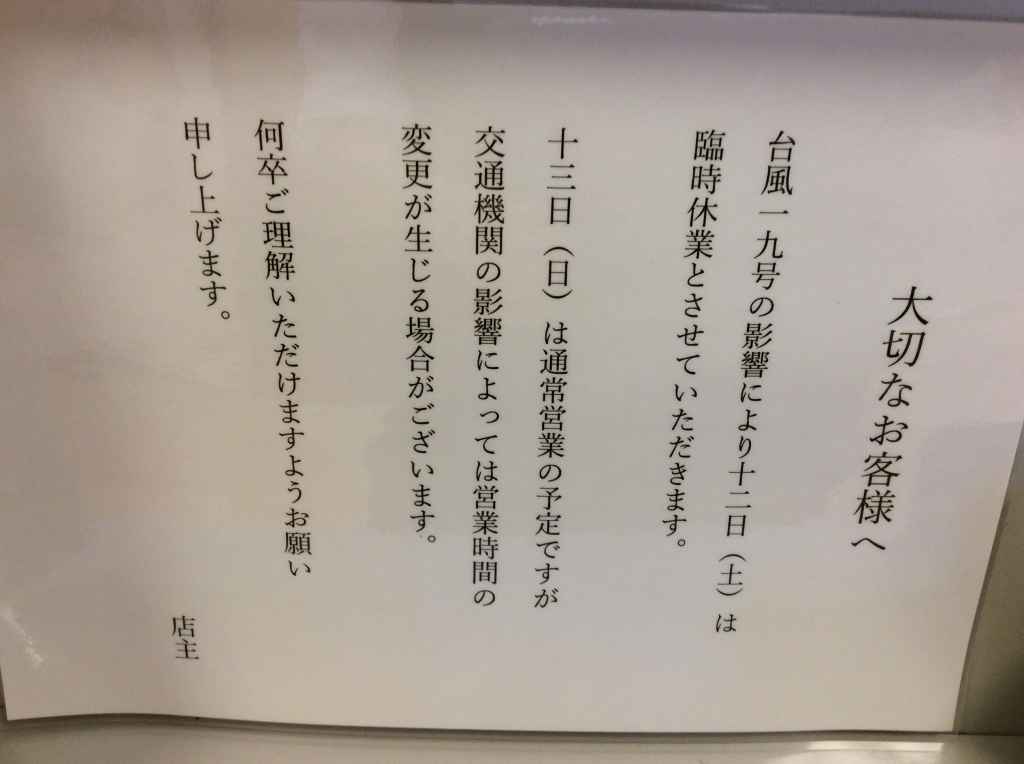 大切なお客様へ
台風一九号の影響により十二日（土）は
臨時休業とさせていただきます。
十三日（日）は通常営業の予定ですが
交通機関の影響によっては営業時間の
変更が生じる場合がございます。
何卒ご理解いただけますようお願い
申し上げます。
店主